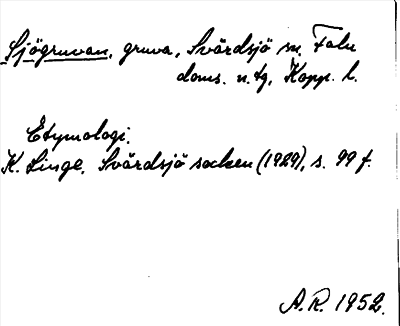 Sjögruvan, gruva, Svärdsjö sn. Falu
doms. n. tg, Kopp. l.
Etymologi.
K. Linge, Svärdsjö socken (1929), s. 99 f.
A.R. 1952.